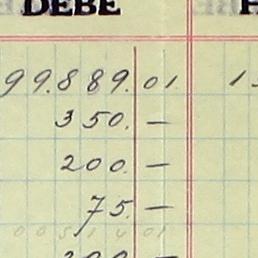 DEBE H
99.889.01 1
350.—
200.—
75.—